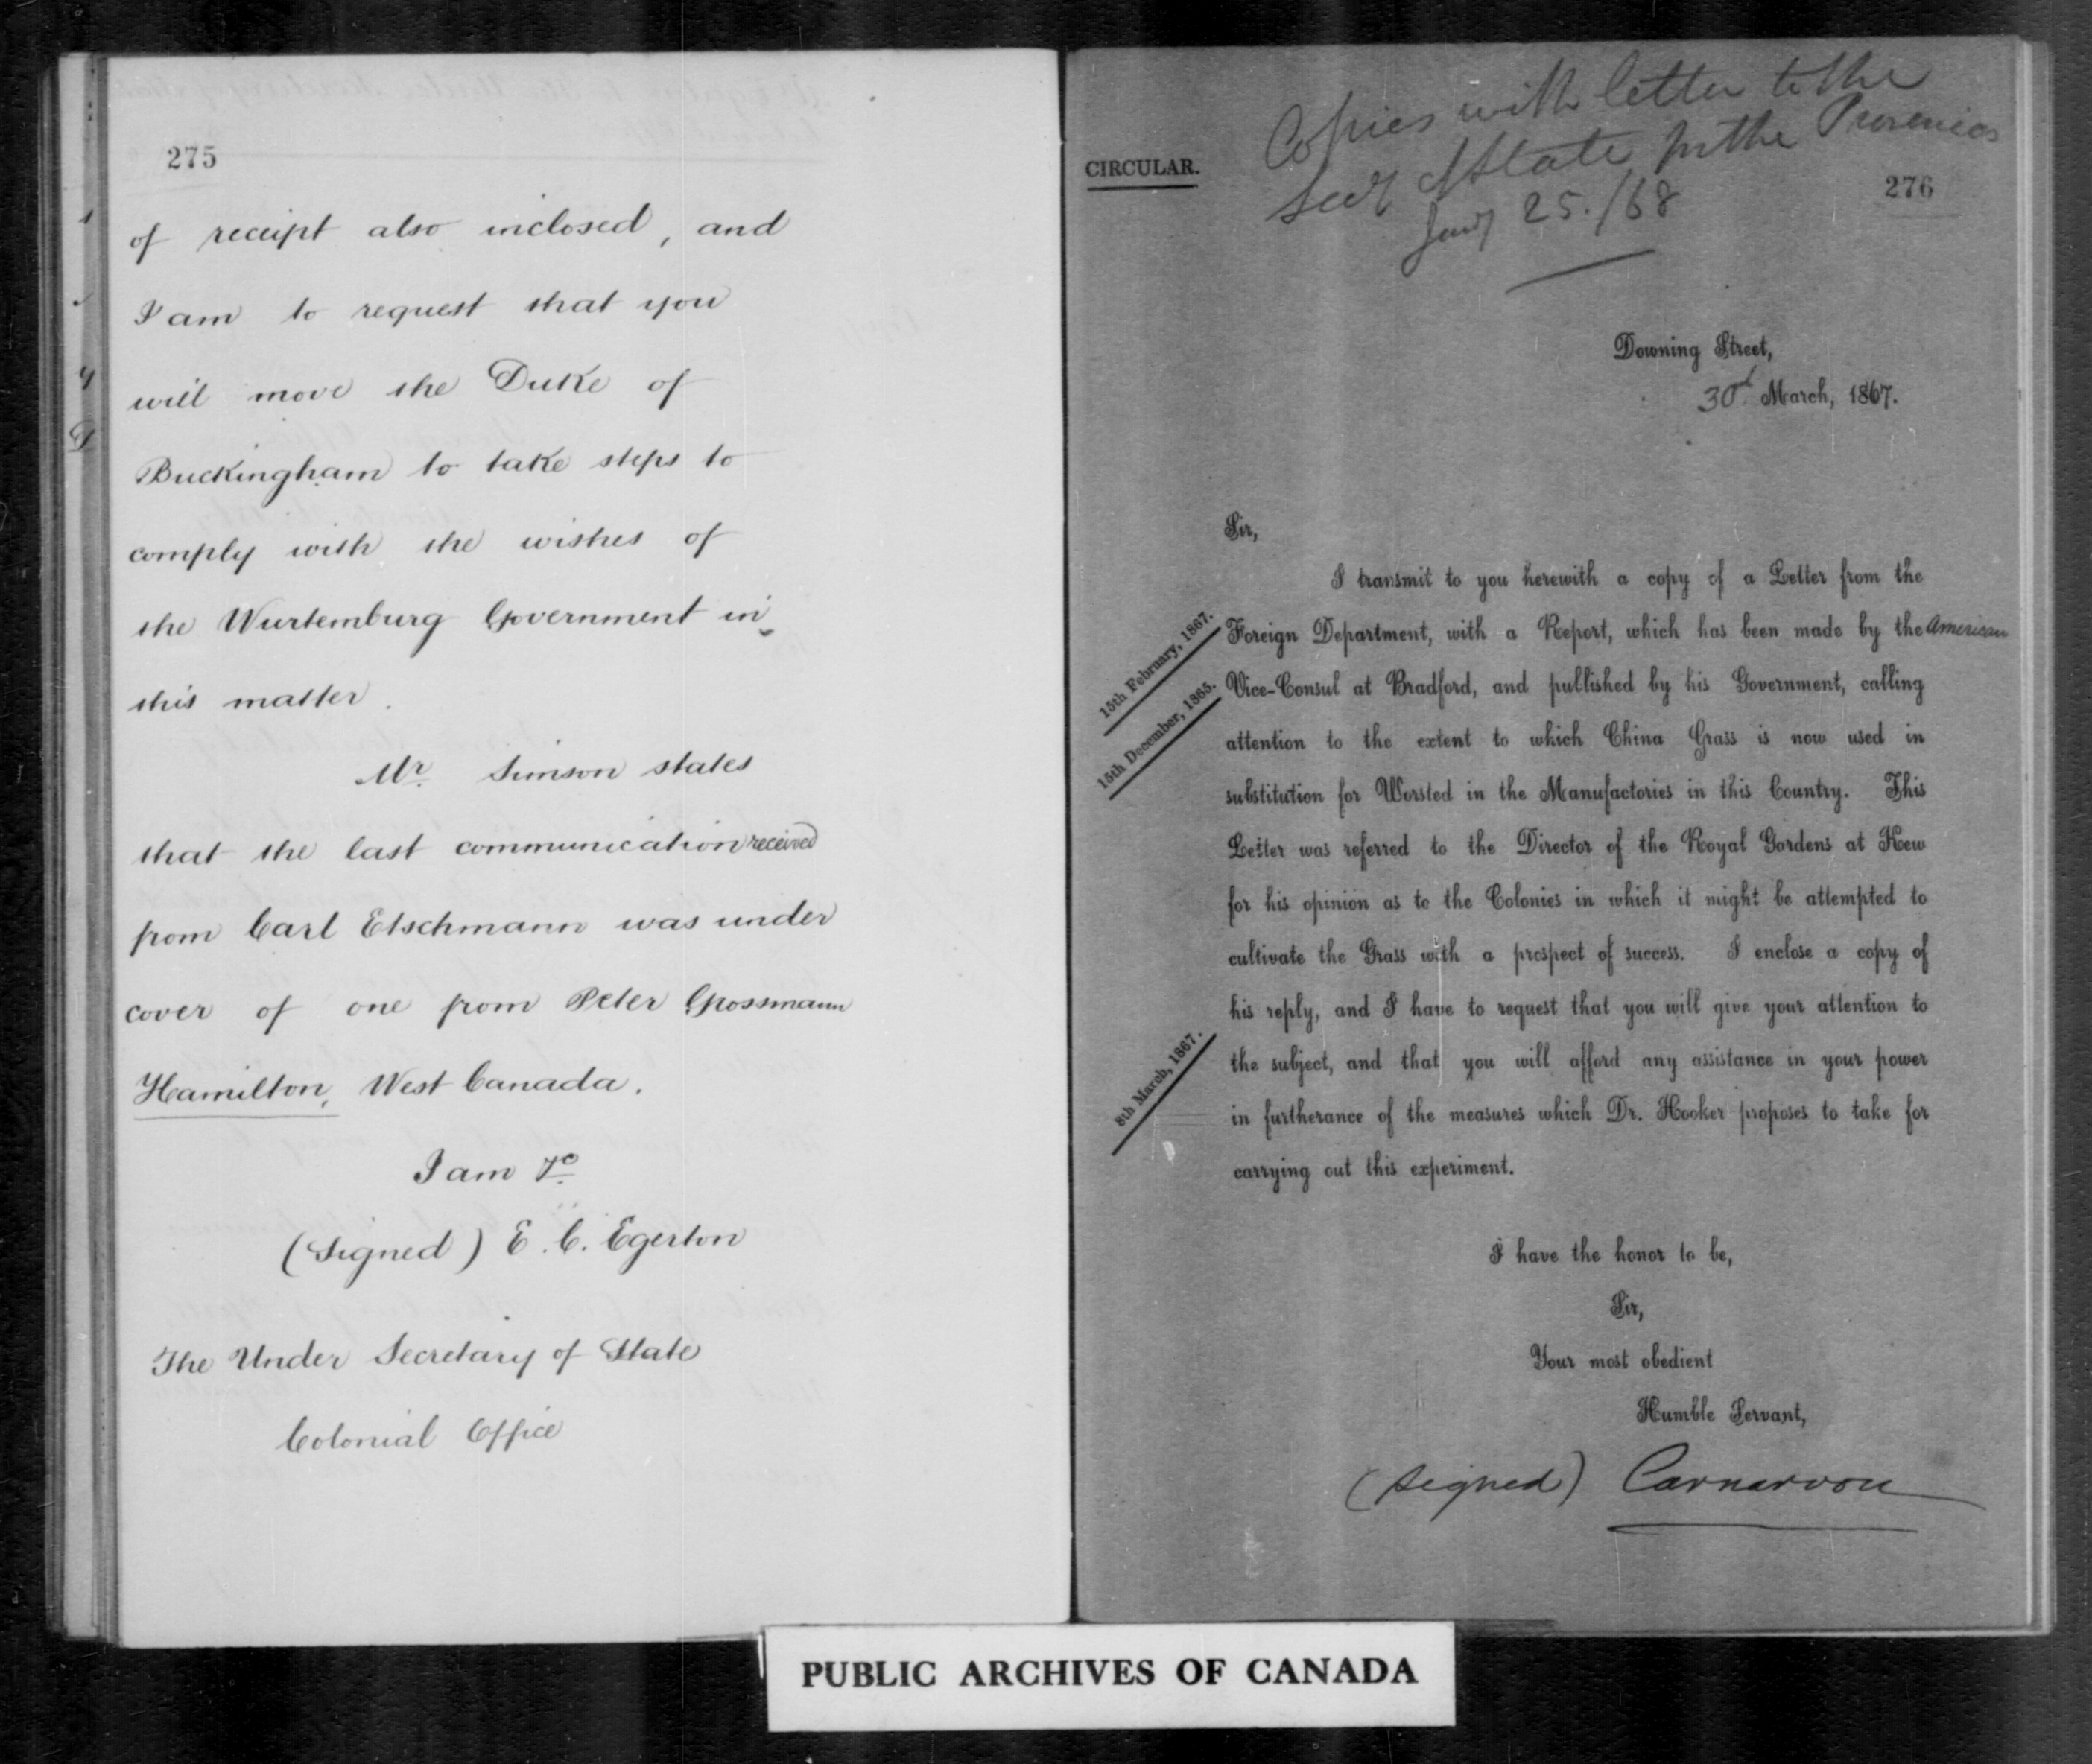 275
of receipt also inclosed, and
I am to request that you
will move the Duke of
Buckingham to take steps to
comply with the wishes of
the Wurtemburg Government in
this matter.
Mr. Simson states
that the last communication received
from Carl Etschmann was under
cover of one from Peter Grossmann
Hamilton, West Canada.
I am &c
(Signed) E. C. Egerton
The Under Secretary of State
Colonial Office
Copies with letter to the
Secy of State for the Provinces
Jany 25./68
CIRCULAR.
276
Downing Street,
30th March, 1867.
Sir,
I transmit to you herewith a copy of a Letter from the
15th February, 1867.
Foreign Department, with a Report, which has been made by the American
15th December, 1865.
Vice-Consul at Bradford, and published by his Government, calling
attention to the extent to which China Grass is now used in
substitution for Worsted in the Manufactories in this Country. This
Letter was referred to the Director of the Royal Gardens at Kew
for his opinion as to the Colonies in which it might be attempted to
cultivate the Grass with a prospect of success. I enclose a copy of
his reply, and I have to request that you will give your attention to
8th March, 1867.
the subject, and that you will afford any assistance in your power
in furtherance of the measures which Dr. Hooker proposes to take for
carrying out this experiment.
I have the honor to be,
Sir,
Your most obedient
Humble Servant,
(signed) Carnarvon
PUBLIC ARCHIVES OF CANADA